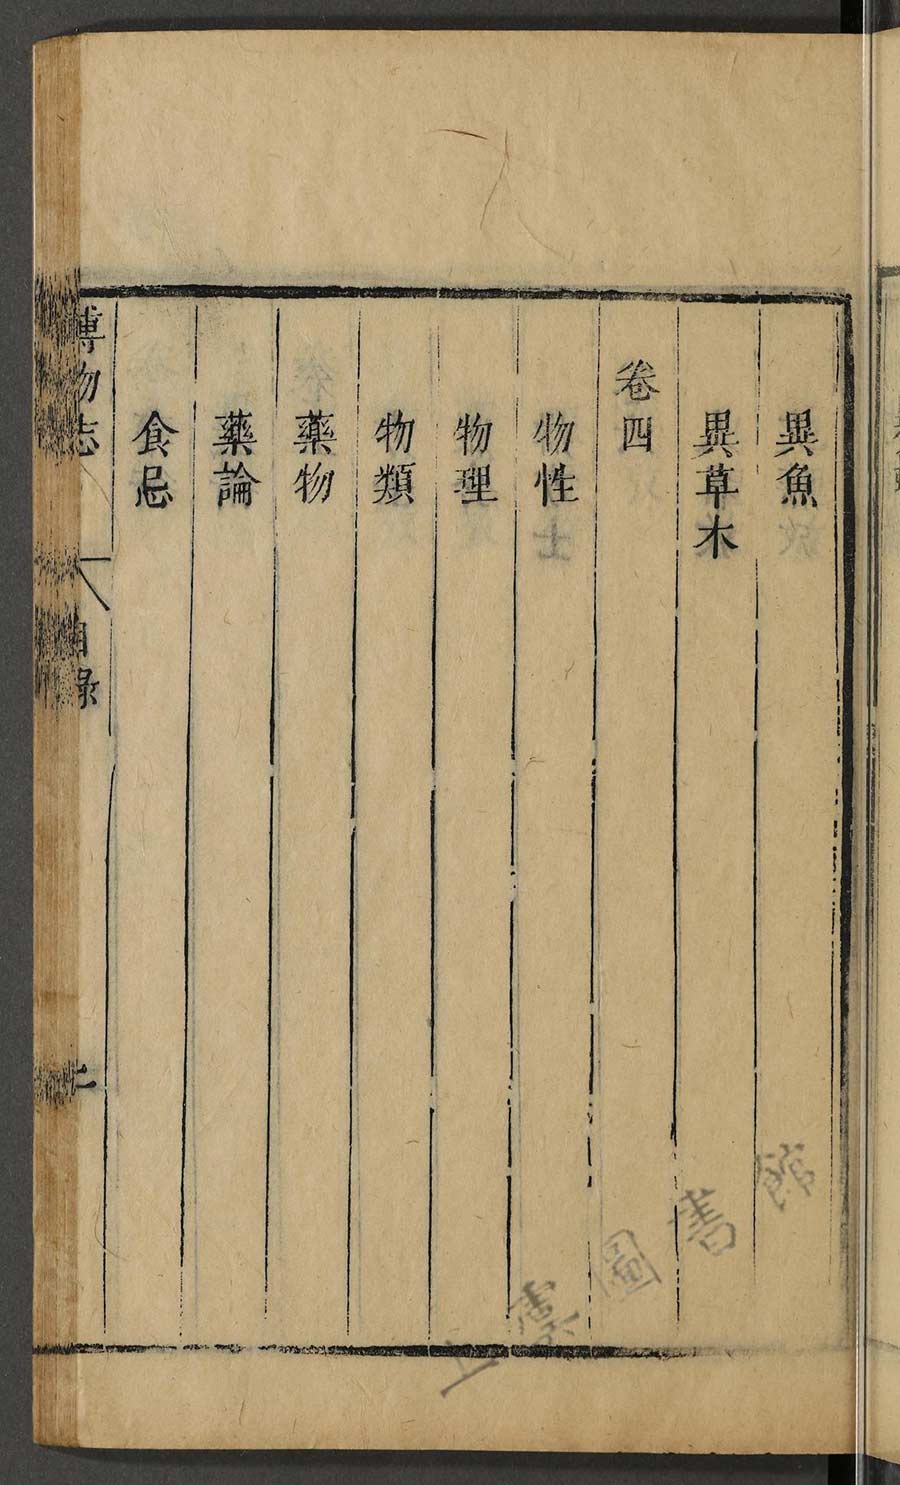 異魚
異草木
卷四
物性
物理
物類
藥物
藥論
食忌
博物志
目錄
二
上虞圖書館